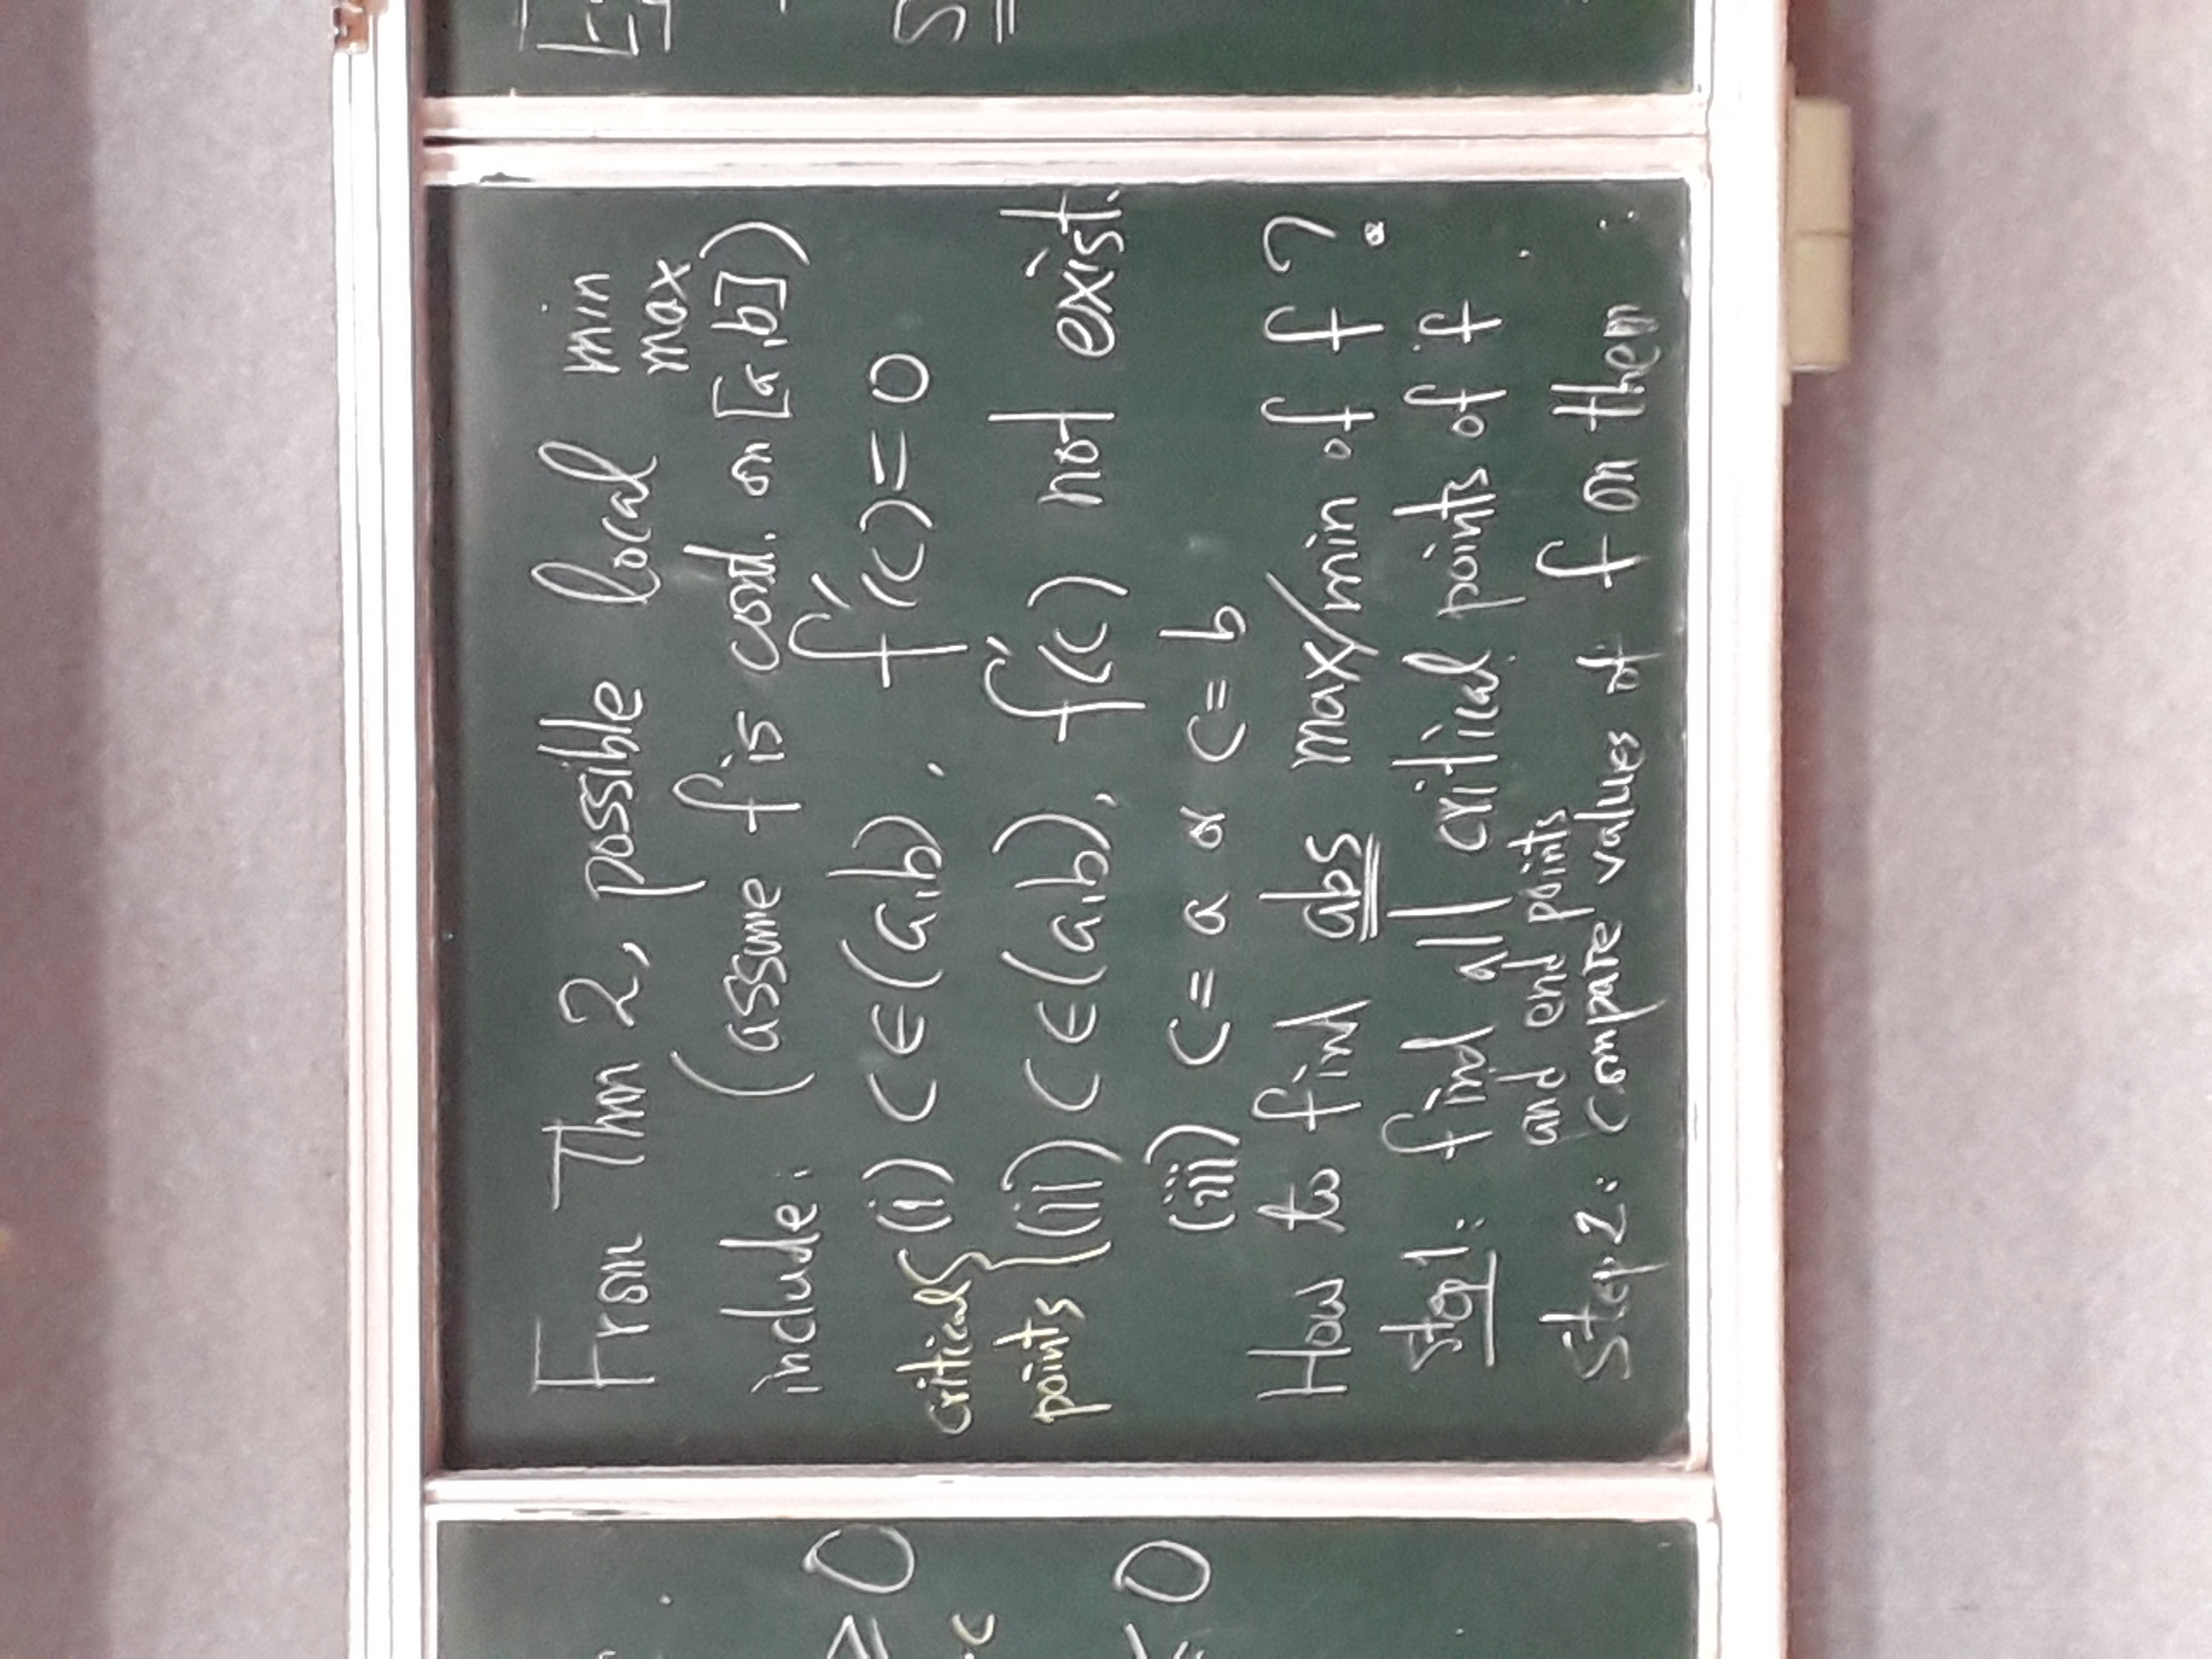 From Thm 2, possible local min
max
include: (assume f is cont. on [a,b])
critical points { (i) c ∈ (a,b), f'(c) = 0
(ii) c ∈ (a,b), f'(c) not exist.
(iii) c = a or c = b
How to find abs max/min of f ?
Step 1: find all critical points of f
and end points
Step 2: compare values of f on them
≥ 0
≤ 0